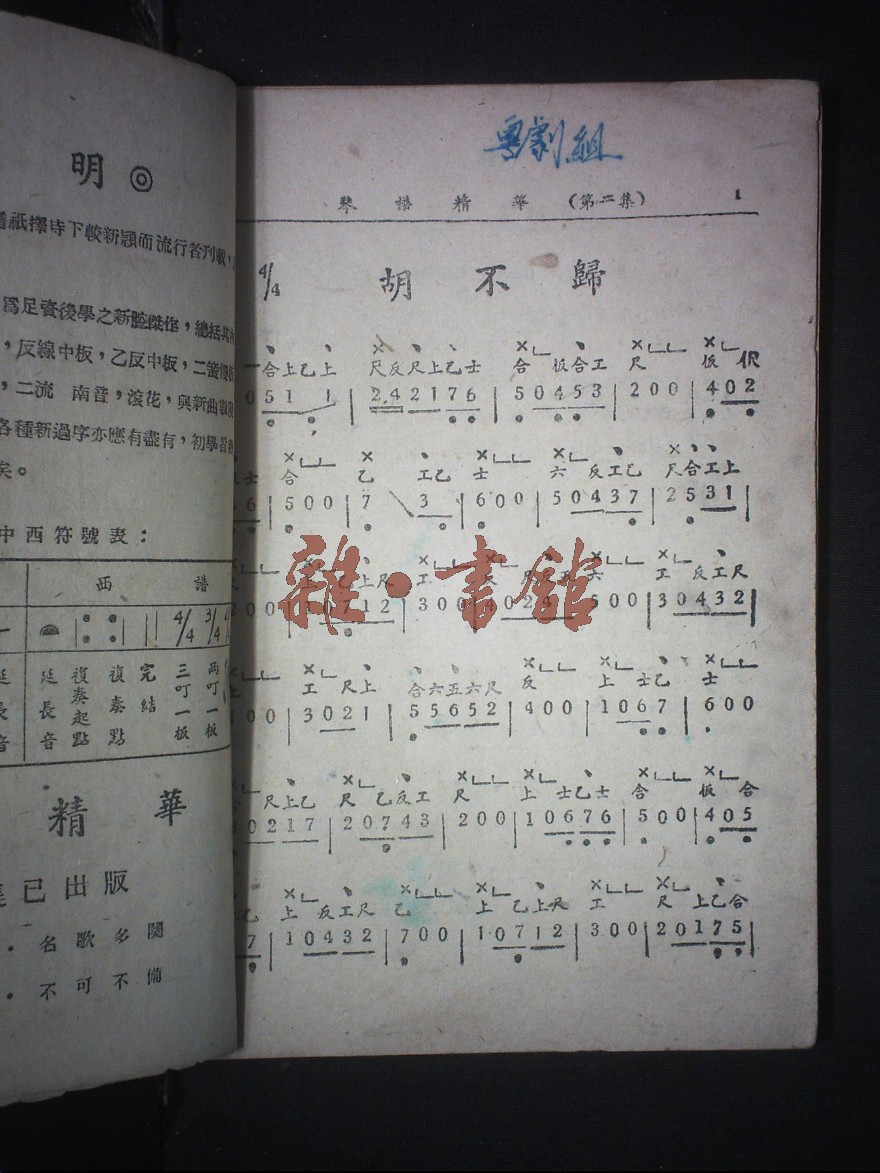 明◎
祇擇時下較新穎而流行者刊載，
爲足資後學之新腔傑作，總括其
，反線中板，乙反中板，二簧慢
，二流　南音，滾花，與新曲
各種新過序亦應有盡有，初學
矣。
中西符號表：
西　譜
4/4 3/4
延長音 復奏起點 復奏點 完結 三叮一板 兩叮一板
精　華
已出版
．名歌多闋
．不可不備
粵劇組
琴譜精華（第二集） 1
4/4　胡不歸
合上乙上　尺反尺上乙士　合　板合工　尺　板　伬
0 5 1 1 | 2 4 2 1 7 6 | 5 0 4 5 3 | 2 0 0 | 4 0 2
士　合　乙　工乙　士　六　反工乙　尺合工上
6 | 5 0 0 | 7 3 | 6 0 0 | 5 0 4 3 7 | 2 5 3 1
乙上尺　工　六　工　反工尺
2 0 0 | 1 0 7 1 2 | 3 0 0 | 4 0 2 4 | 5 0 0 | 3 0 4 3 2
上　工　尺上　合六五六尺　反　上　士乙　士
1 0 0 | 3 0 2 1 | 5 5 6 5 2 | 4 0 0 | 1 0 6 7 | 6 0 0
尺上乙　尺　乙反工　尺　上　士乙士　合　板　合
0 2 1 7 | 2 0 7 4 3 | 2 0 0 | 1 0 6 7 6 | 5 0 0 | 4 0 5
乙　上　反工尺　乙　上　乙上尺　工　尺　上乙合
7 | 1 0 4 3 2 | 7 0 0 | 1 0 7 1 2 | 3 0 0 | 2 0 1 7 5
雜·書館